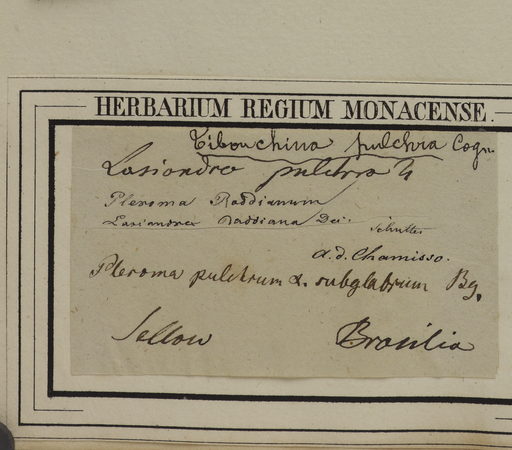 HERBARIUM REGIUM MONACENSE.
Tibouchina pulchra Cogn.
Lasiandra pulchra
Pleroma Raddianum
Lasiandra Raddiana Dec.
a.d. Chamisso.
Pleroma pulchrum α. subglabrum Bg.
Sellow Brasilia